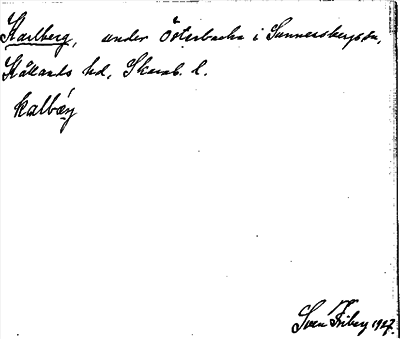 Karlberg, under Österbacka i Sunnersbergs sn,
Kållands hd, Skarab. l.
kalbǽ̨rj
Sven Friberg 1927.